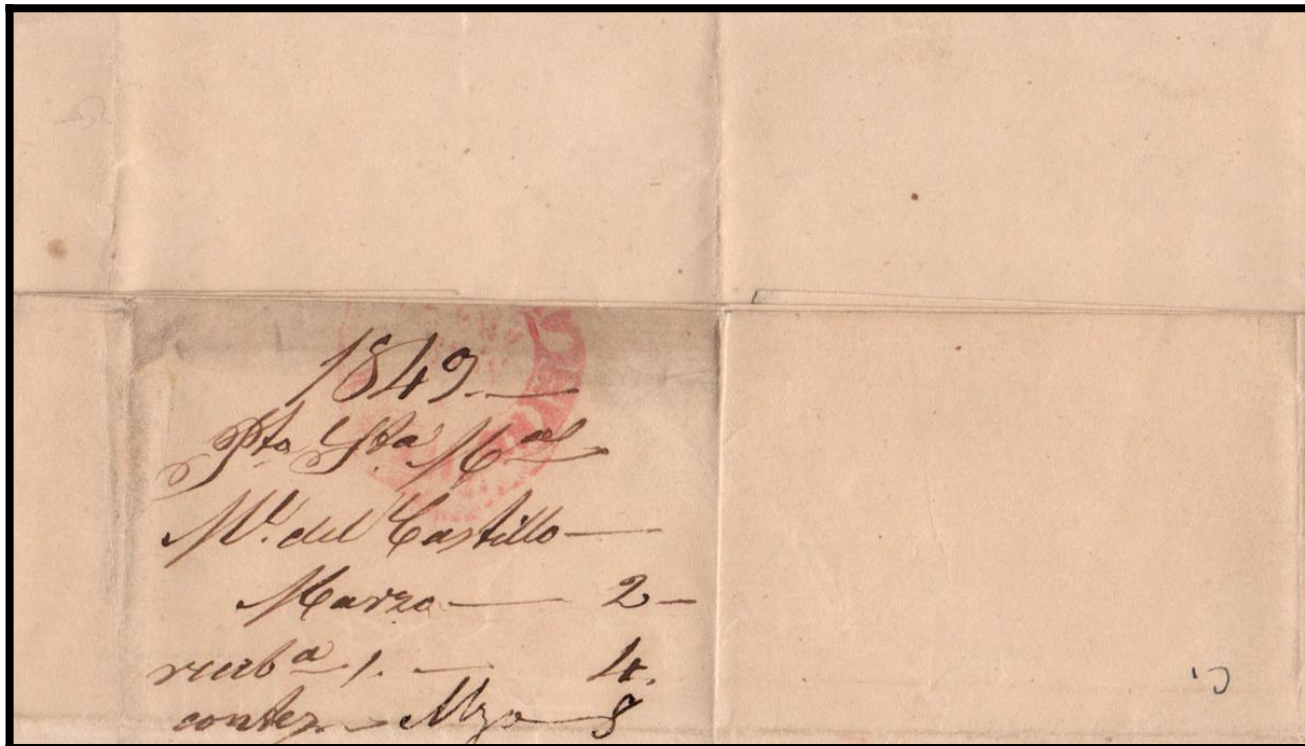 1849.—
Pto Sta Ma
Ml. del Castillo—
Marzo — 2—
recibda — 4.
contez — Mzo — 8